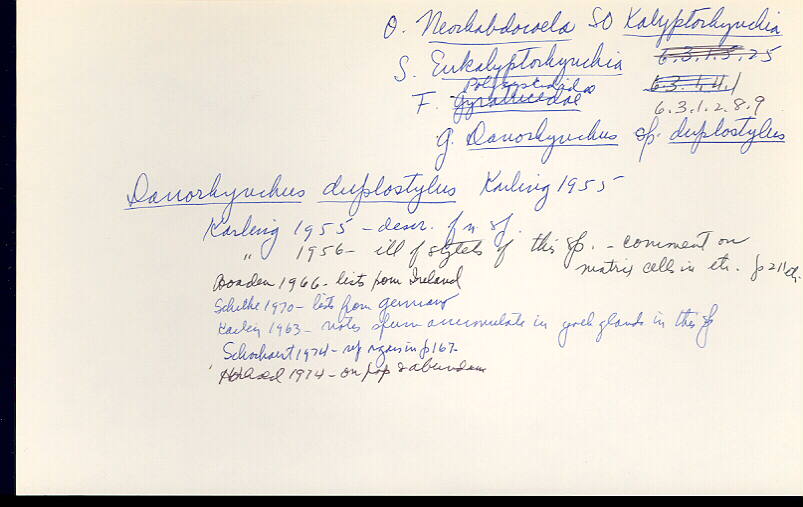 O. Neorhabdocoela SO Kalyptorhynchia
S. Eukalyptorhynchia 6.3.1.5.25
Polycystididae 6.3.1.4.1
F. Gyratricidae 6.3.1.2.8.9
g. Danorhynchus sp. duplostylus
Danorhynchus duplostylus Karling 1955
Karling 1955 - descr. of n. sp.
" 1956 - ill of stylets of this sp. - comment on
matrix cell in etc. p 211 etc.
Boaden 1966 - lists from Ireland
Schilke 1970 - lists from Germany
Karling 1963 - notes sperm accumulate in yolk glands in this sp
Schockaert 1974 - in p 167-
1974 - on pop & abundance